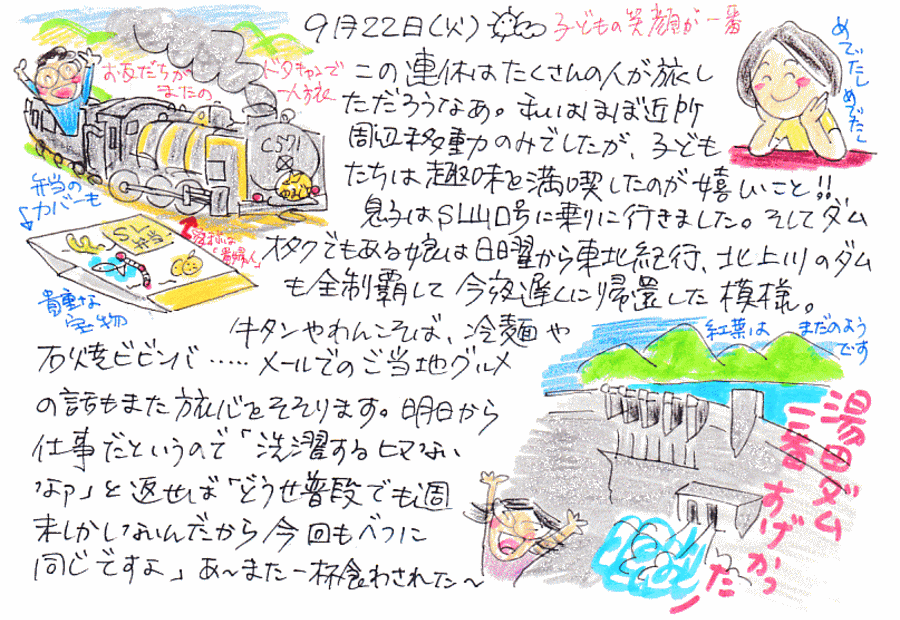 9月22日(火)
子どもの笑顔が一番
めでたしめでたし
お友だちが
またの
ドタキャンで
一人旅
C571
この連休はたくさんの人が旅し
ただろうなあ。私はほぼ近所
周辺移動のみでしたが、子ども
たちは趣味を満喫したのが嬉しいこと!!
息子はSL山口号に乗りに行きました。そしてダム
オタクでもある娘は日曜から東北紀行、北上川のダム
も全制覇して今夜遅くに帰還した模様。
弁当の
カバーも
SL
弁当
「貴婦人」
貴重な
宝物
牛タンやわんこそば、冷麺や
石焼ビビンバ……メールでのご当地グルメ
の話もまた旅心をそそります。明日から
仕事だというので「洗濯するヒマない
なァ」と返せば「どうせ普段でも週
末しかしないんだから今回もべつに
同じですよ」あ〜また一杯食わされた〜
紅葉は まだのよう
です
湯田ダム
一番すげかった!